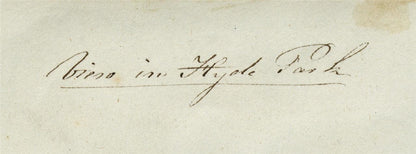 View in Hyde Park